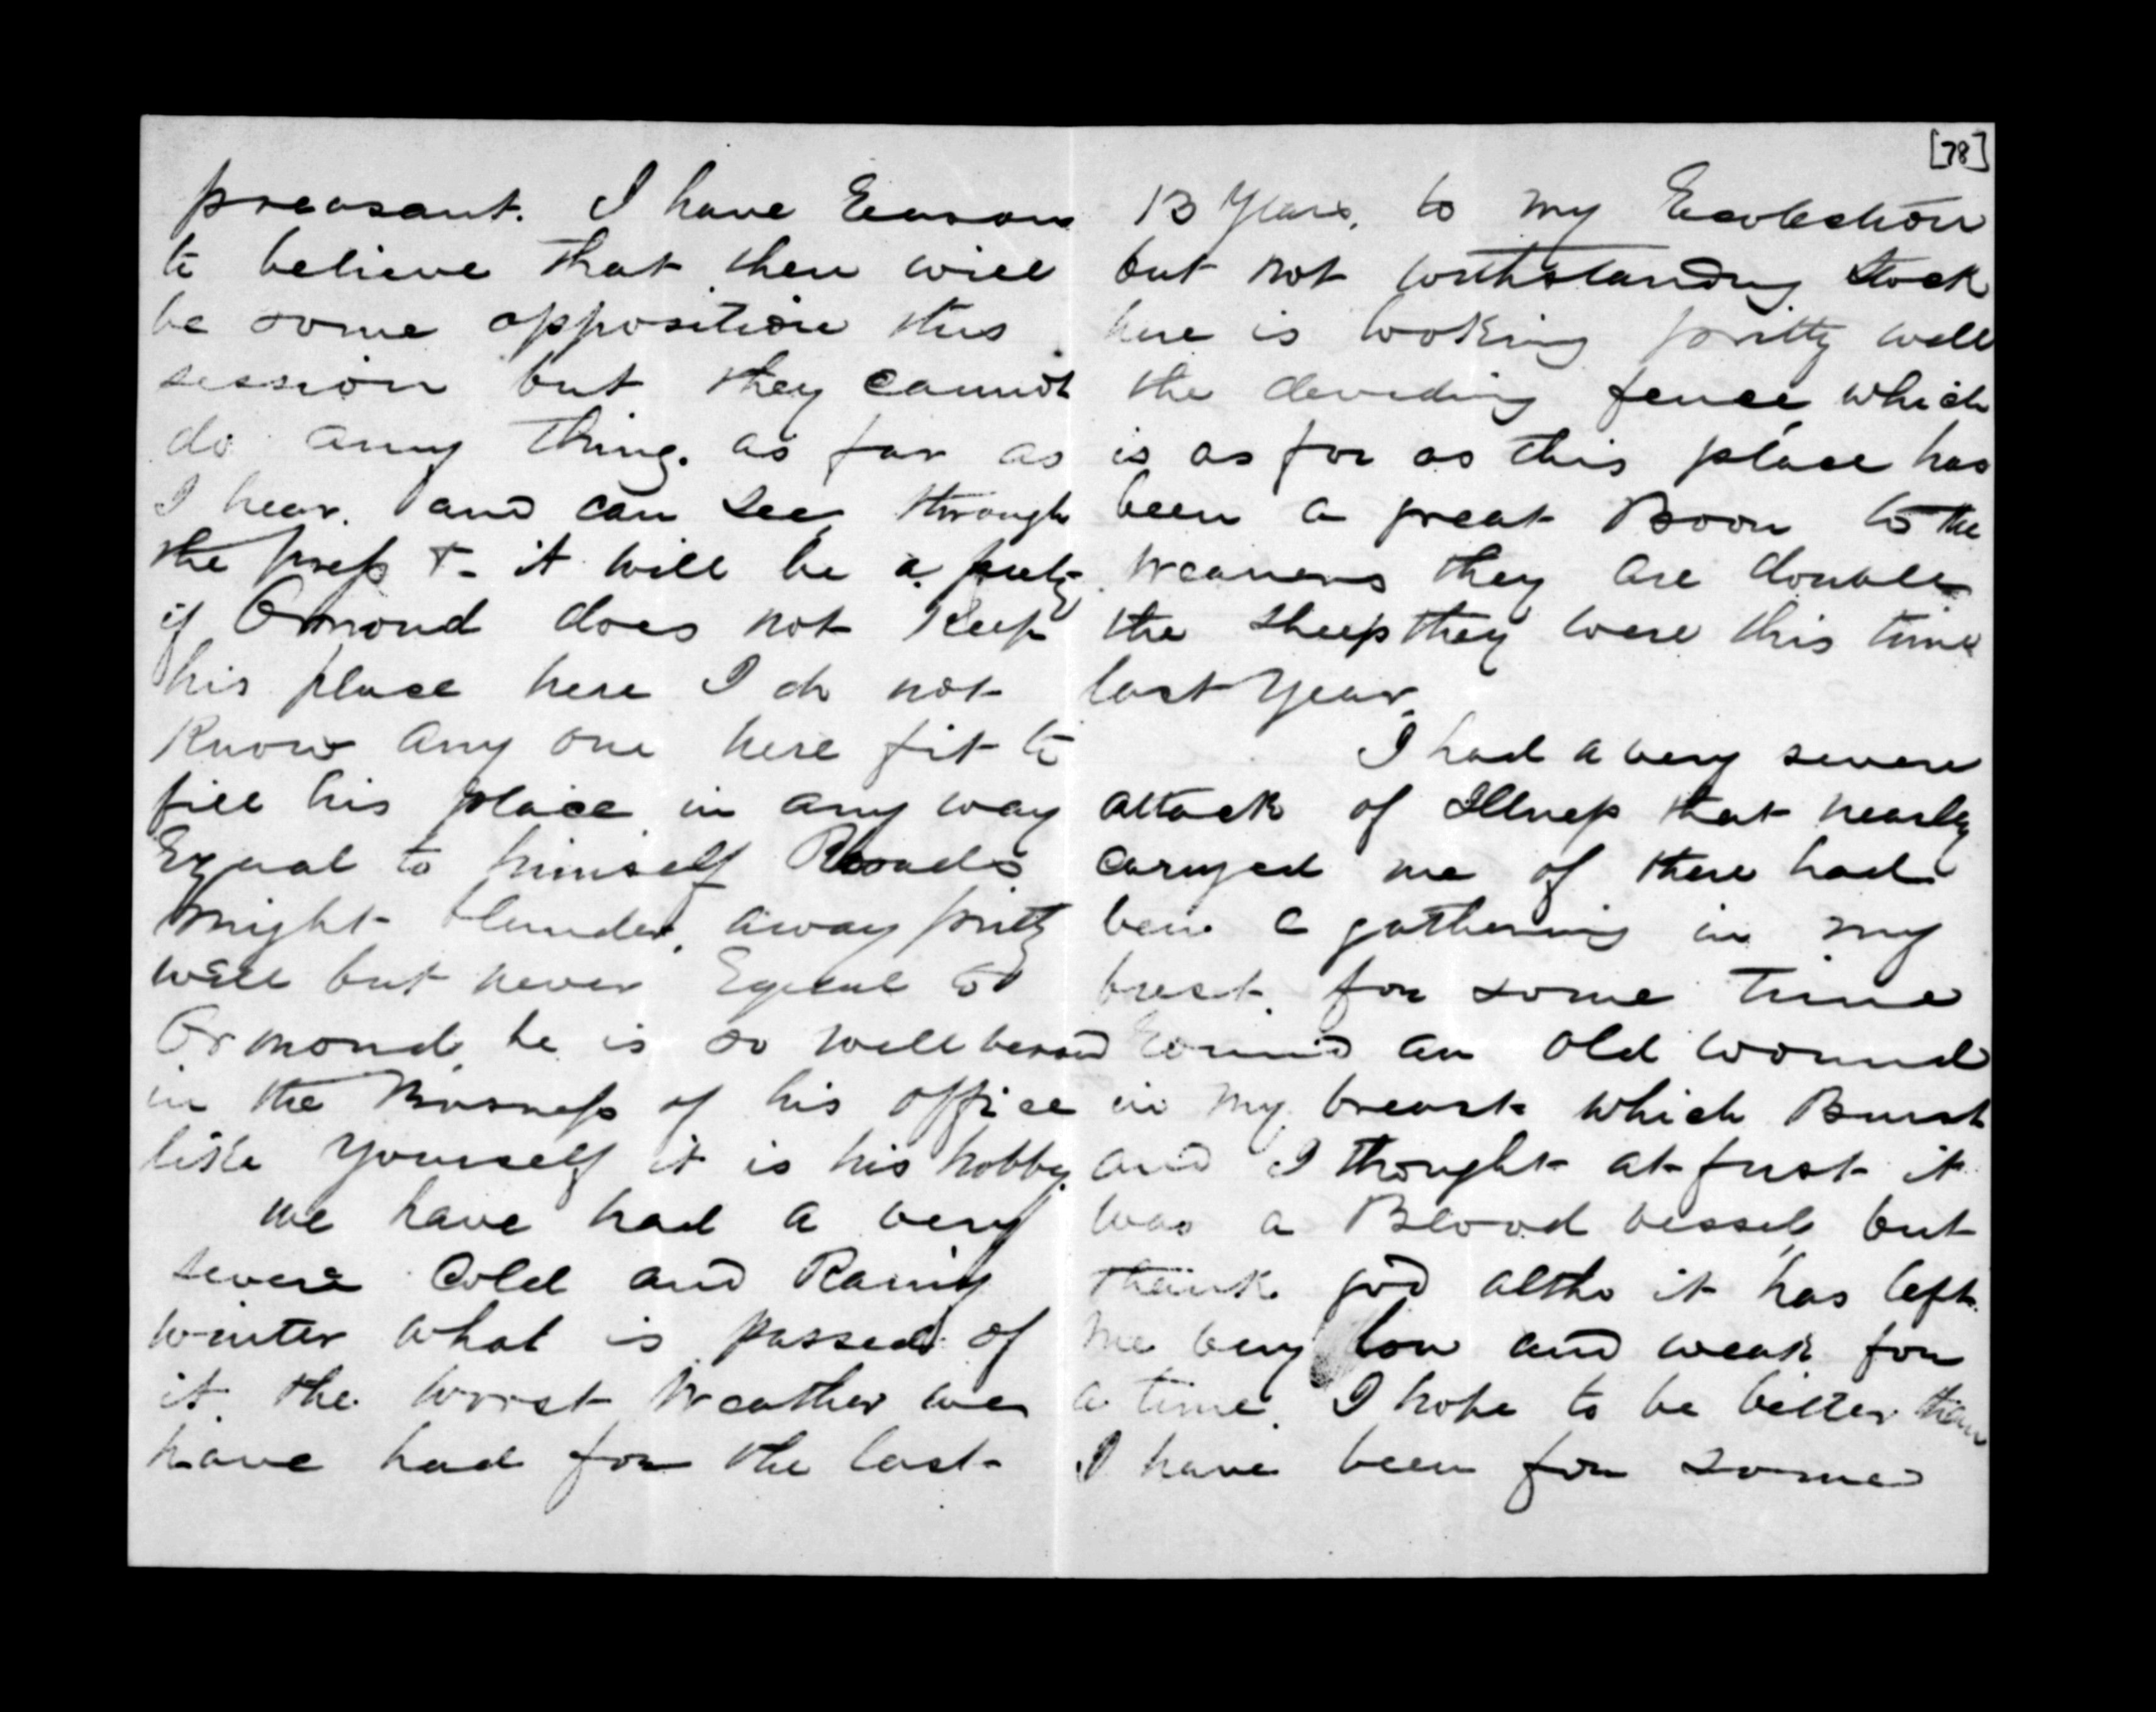 preasant. I have Eeason
to believe that there will
be some opposition this
session but they cannot
do anny thing. as far as
I hear. and can see through
the press + - it will be a pity
if Ormond does not keep
his place here I do not
Know any one here fit to
fill his place in any way
Equal to himself Rhoads
might blunder, away pritty
well but never Equeal to
Ormond, he is so well versed
in the Busness of his office
like Yourself it is his hobby.
we have had a very
severe Cold and Rainy
winter what is passed of
it. the worst Weather we
have had for the last
[78]
13 Years, to my Eecolection
but not withstanding Stock
here is looking pritty well
the deviding fence, which
is as far as this place has
been a great Boon to the
Weaners they are double
the Sheep they were this time
last Year.
I had a very severe
attack of Illness that nearly
carryed me of there had
been a gathering in my
brest. for some time
Eound an old wound
in my breast which Burst
and I thought at first it
was a Blood vessel, but
thank god altho it has left
me very low and weak for
a time. I hope to be better than
I have been for some